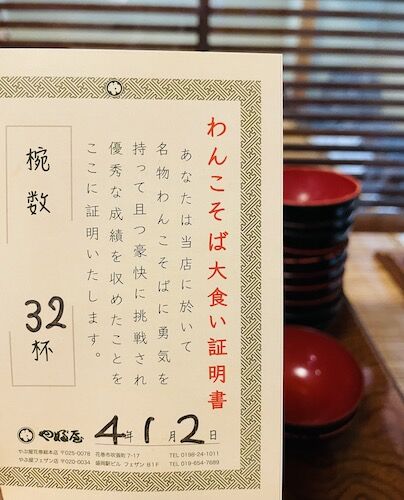 わんこそば大食い証明書
あなたは当店に於いて
名物わんこそばに勇気を
持って且つ豪快に挑戦され
優秀な成績を収めたことを
ここに証明いたします。
椀数
32杯
4年1月2日
やぶ屋
やぶ屋花巻総本店 〒025-0078 花巻市吹張町7-17 TEL 0198-24-1011
やぶ屋フェザン店 〒020-0034 盛岡駅ビル フェザン B1F TEL 019-654-7689